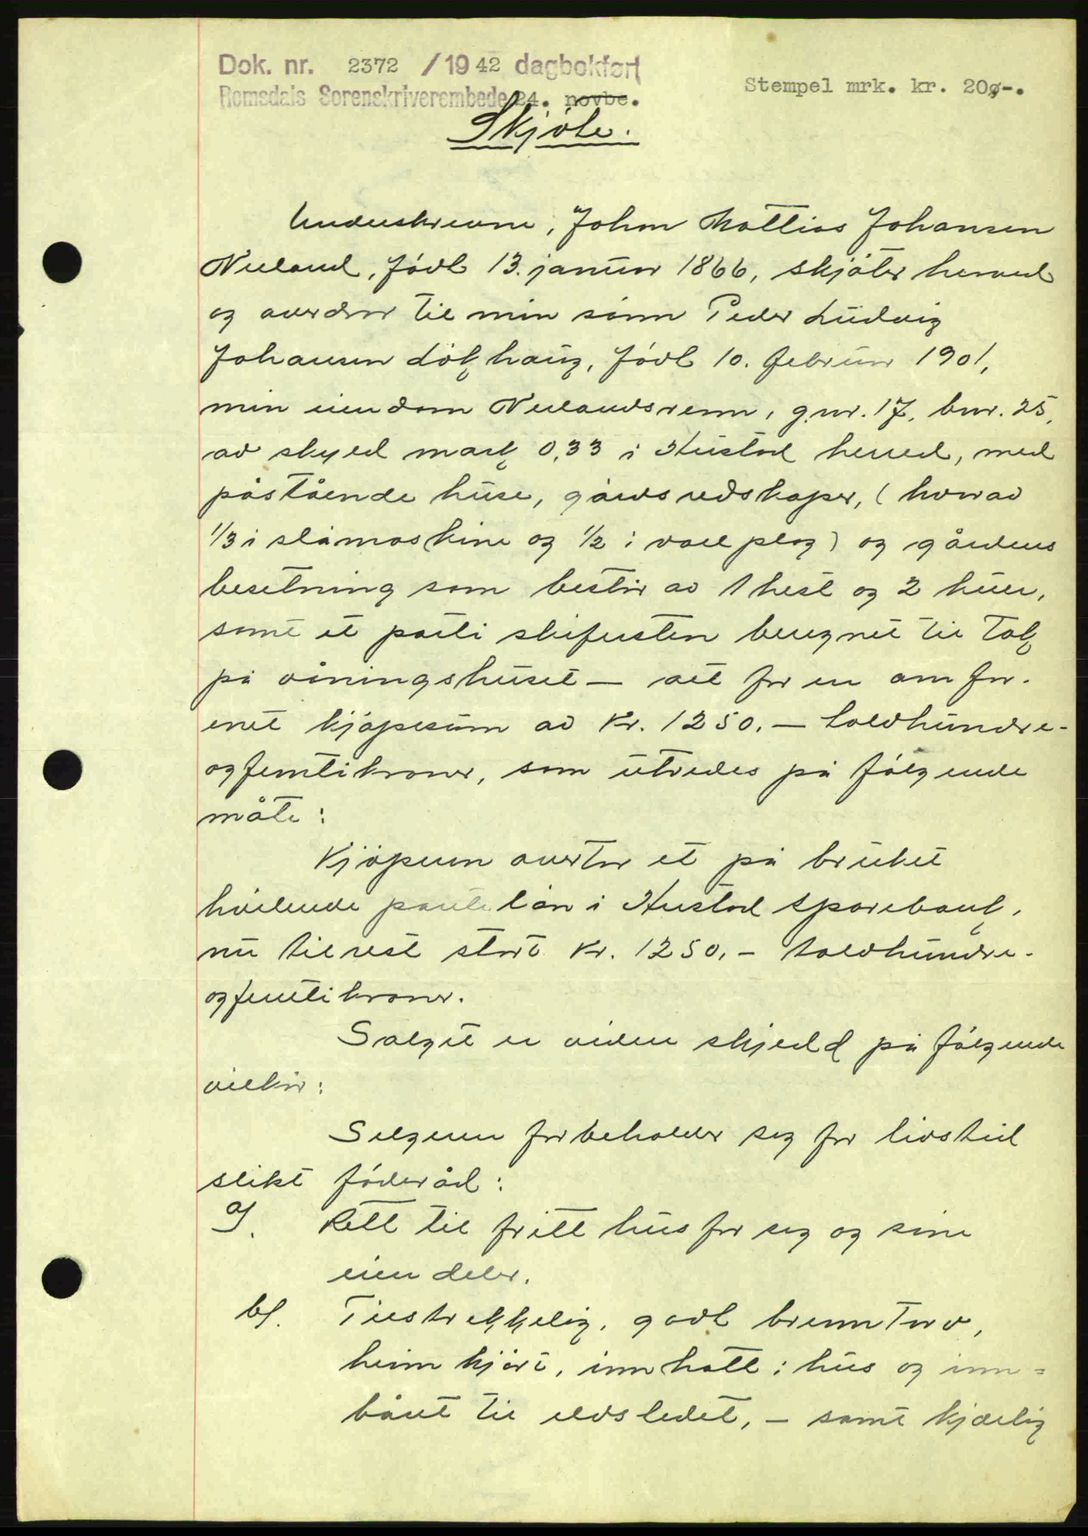 Dok. nr. 2372 /1942 dagbokført
Romsdals Sorenskriverembede 24. novbe.
Stempel mrk. kr. 20,-.
Skjöte.
Underskrevne, Johan Mattias Johansen
Neeland, född 13. januar 1866, skjöter herved
og overdrar til min sönn Peder Ludvig
Johansen Lökhaug, född 10. februar 1901,
min eiendom Neelandsrenn, g.nr. 17, bnr. 25,
av skyld mark 0,33 i Hustad herred, med
påstående huse, gårdsredskaper, (hvorav
1/3 i slåmaskine og 1/2 i voll plog) og gårdens
besetning som består av 1 hest og 2 kuer,
samt et parti skifersten beregnet til tak
på våningshuset — alt for en omfor-
enet kjöpesum av kr. 1250.— tolvhundre-
ogfemtikroner, som utredes på fölgende
måte:
Kjöperen overtar et på bruket
hvilende pantelån i Hustad Sparebank,
nu til rest stort kr. 1250.- tolvhundre-
ogfemtikroner.
Salget er viden skjedd på fölgende
vilkår:
Selgeren forbeholder seg for livstid
slikt föderåd:
a). Rett til fritt hus for seg og sine
eiendeler.
b). Tilstrekkelig, godt brenntorv,
heimkjört, innhatt i hus og inn=
båret til ildstedet, — samt kjørlig